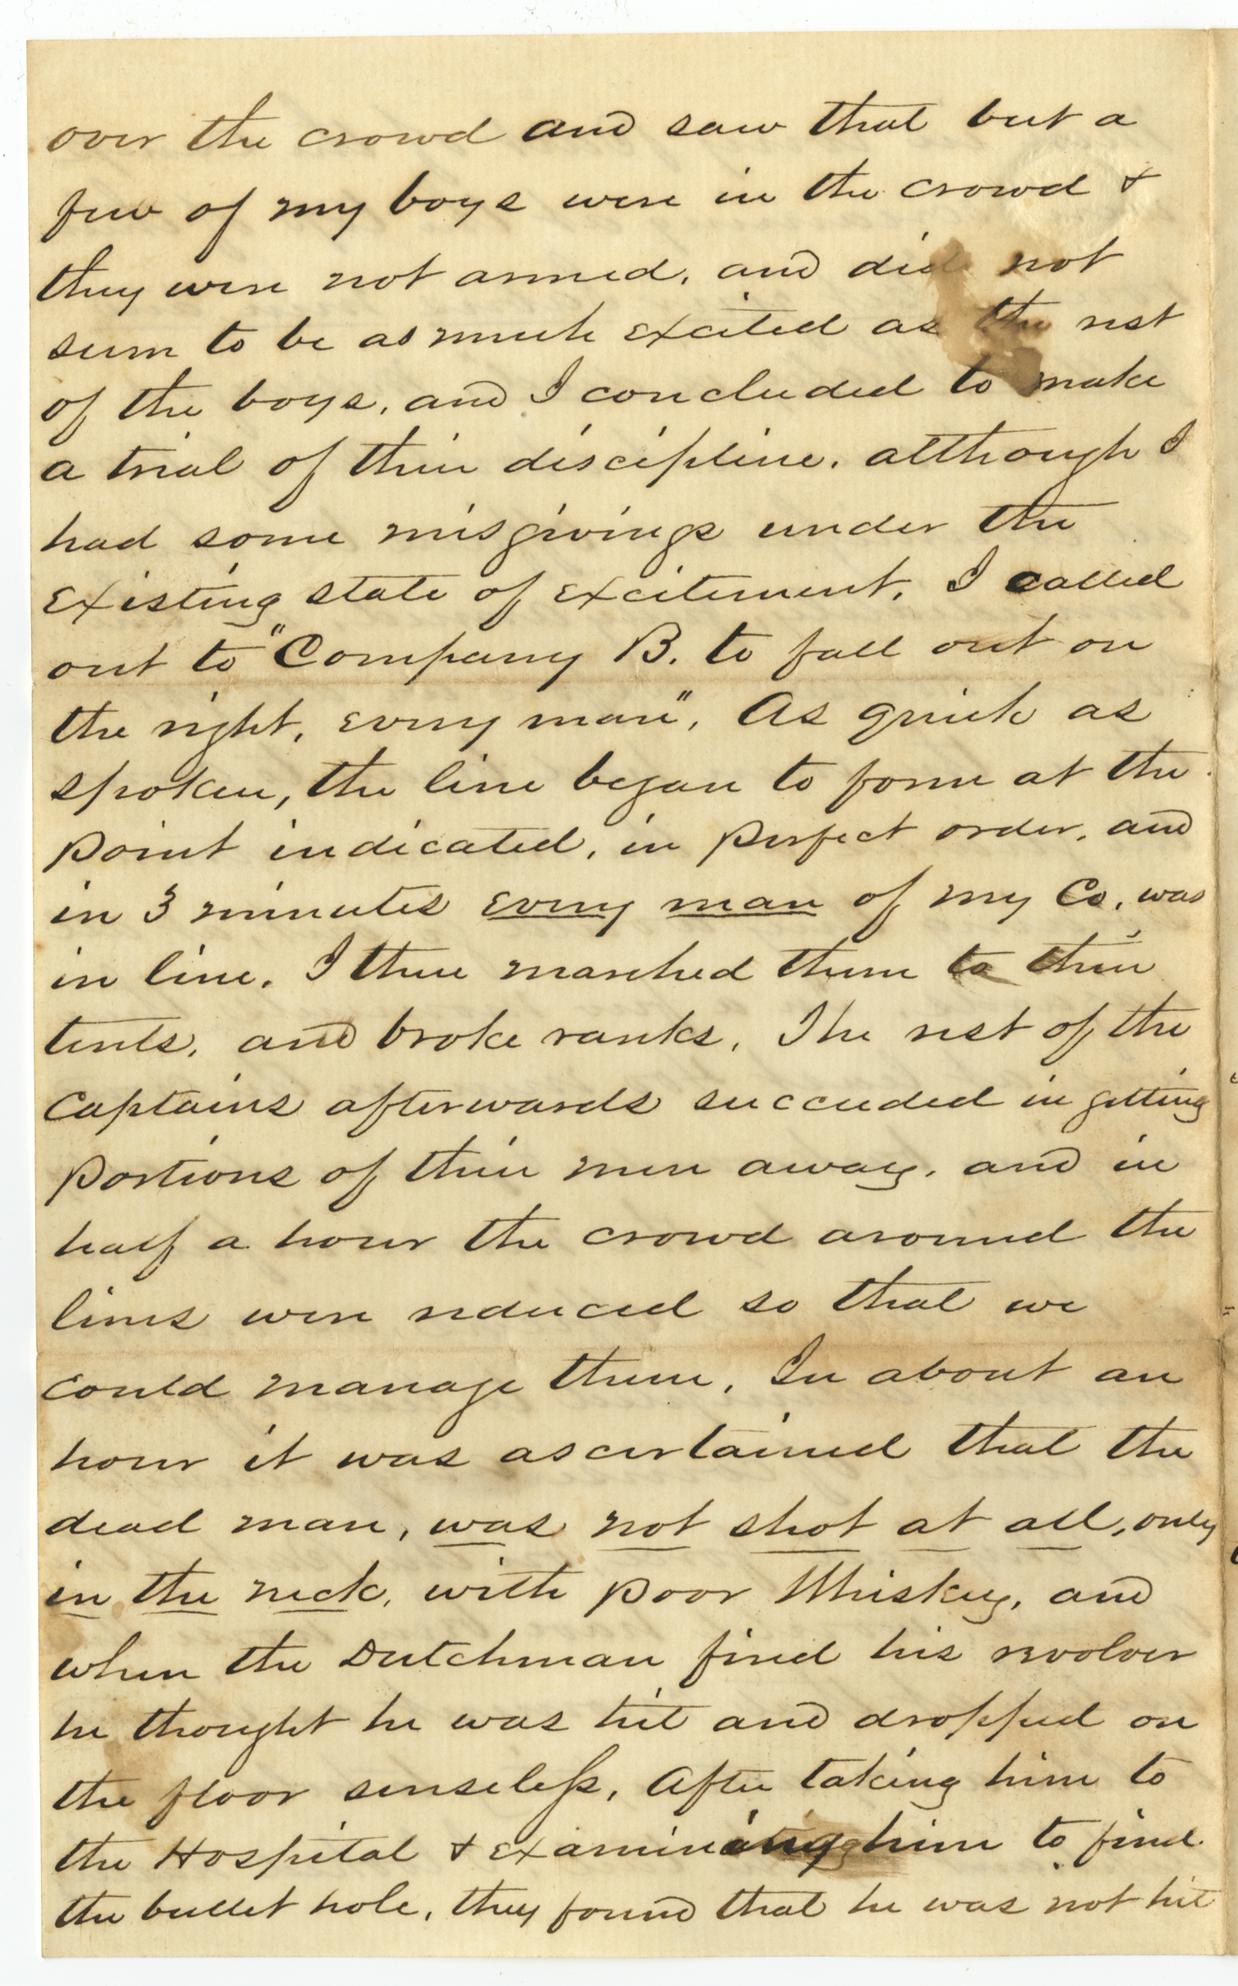 over the crowd and saw that but a
few of my boys were in the crowd &
they were not armed, and did not
seem to be as much excited as the rest
of the boys, and I concluded to make
a trial of their discipline, although I
had some misgivings under the
existing state of excitement. I called
out to "Company B. to fall out on
the right, every man". As quick as
spoken, the line began to form at the
point indicated, in perfect order, and
in 3 minutes every man of my Co, was
in line. I then marched them to their
tents, and broke ranks. The rest of the
Captains afterwards succeeded in getting
portions of their men away, and in
half a hour the crowd around the
lines were reduced so that we
could manage them. In about an
hour it was ascertained that the
dead man, was not shot at all, only
in the neck, with poor Whiskey, and
when the Dutchman fired his revolver
he thought he was hit and dropped on
the floor senseless, After taking him to
the Hospital & examining him to find
the bullet hole, they found that he was not hit